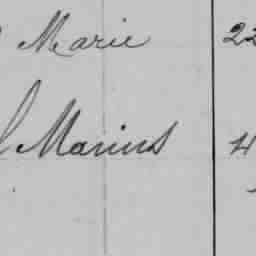 Marie 22
Marius 4